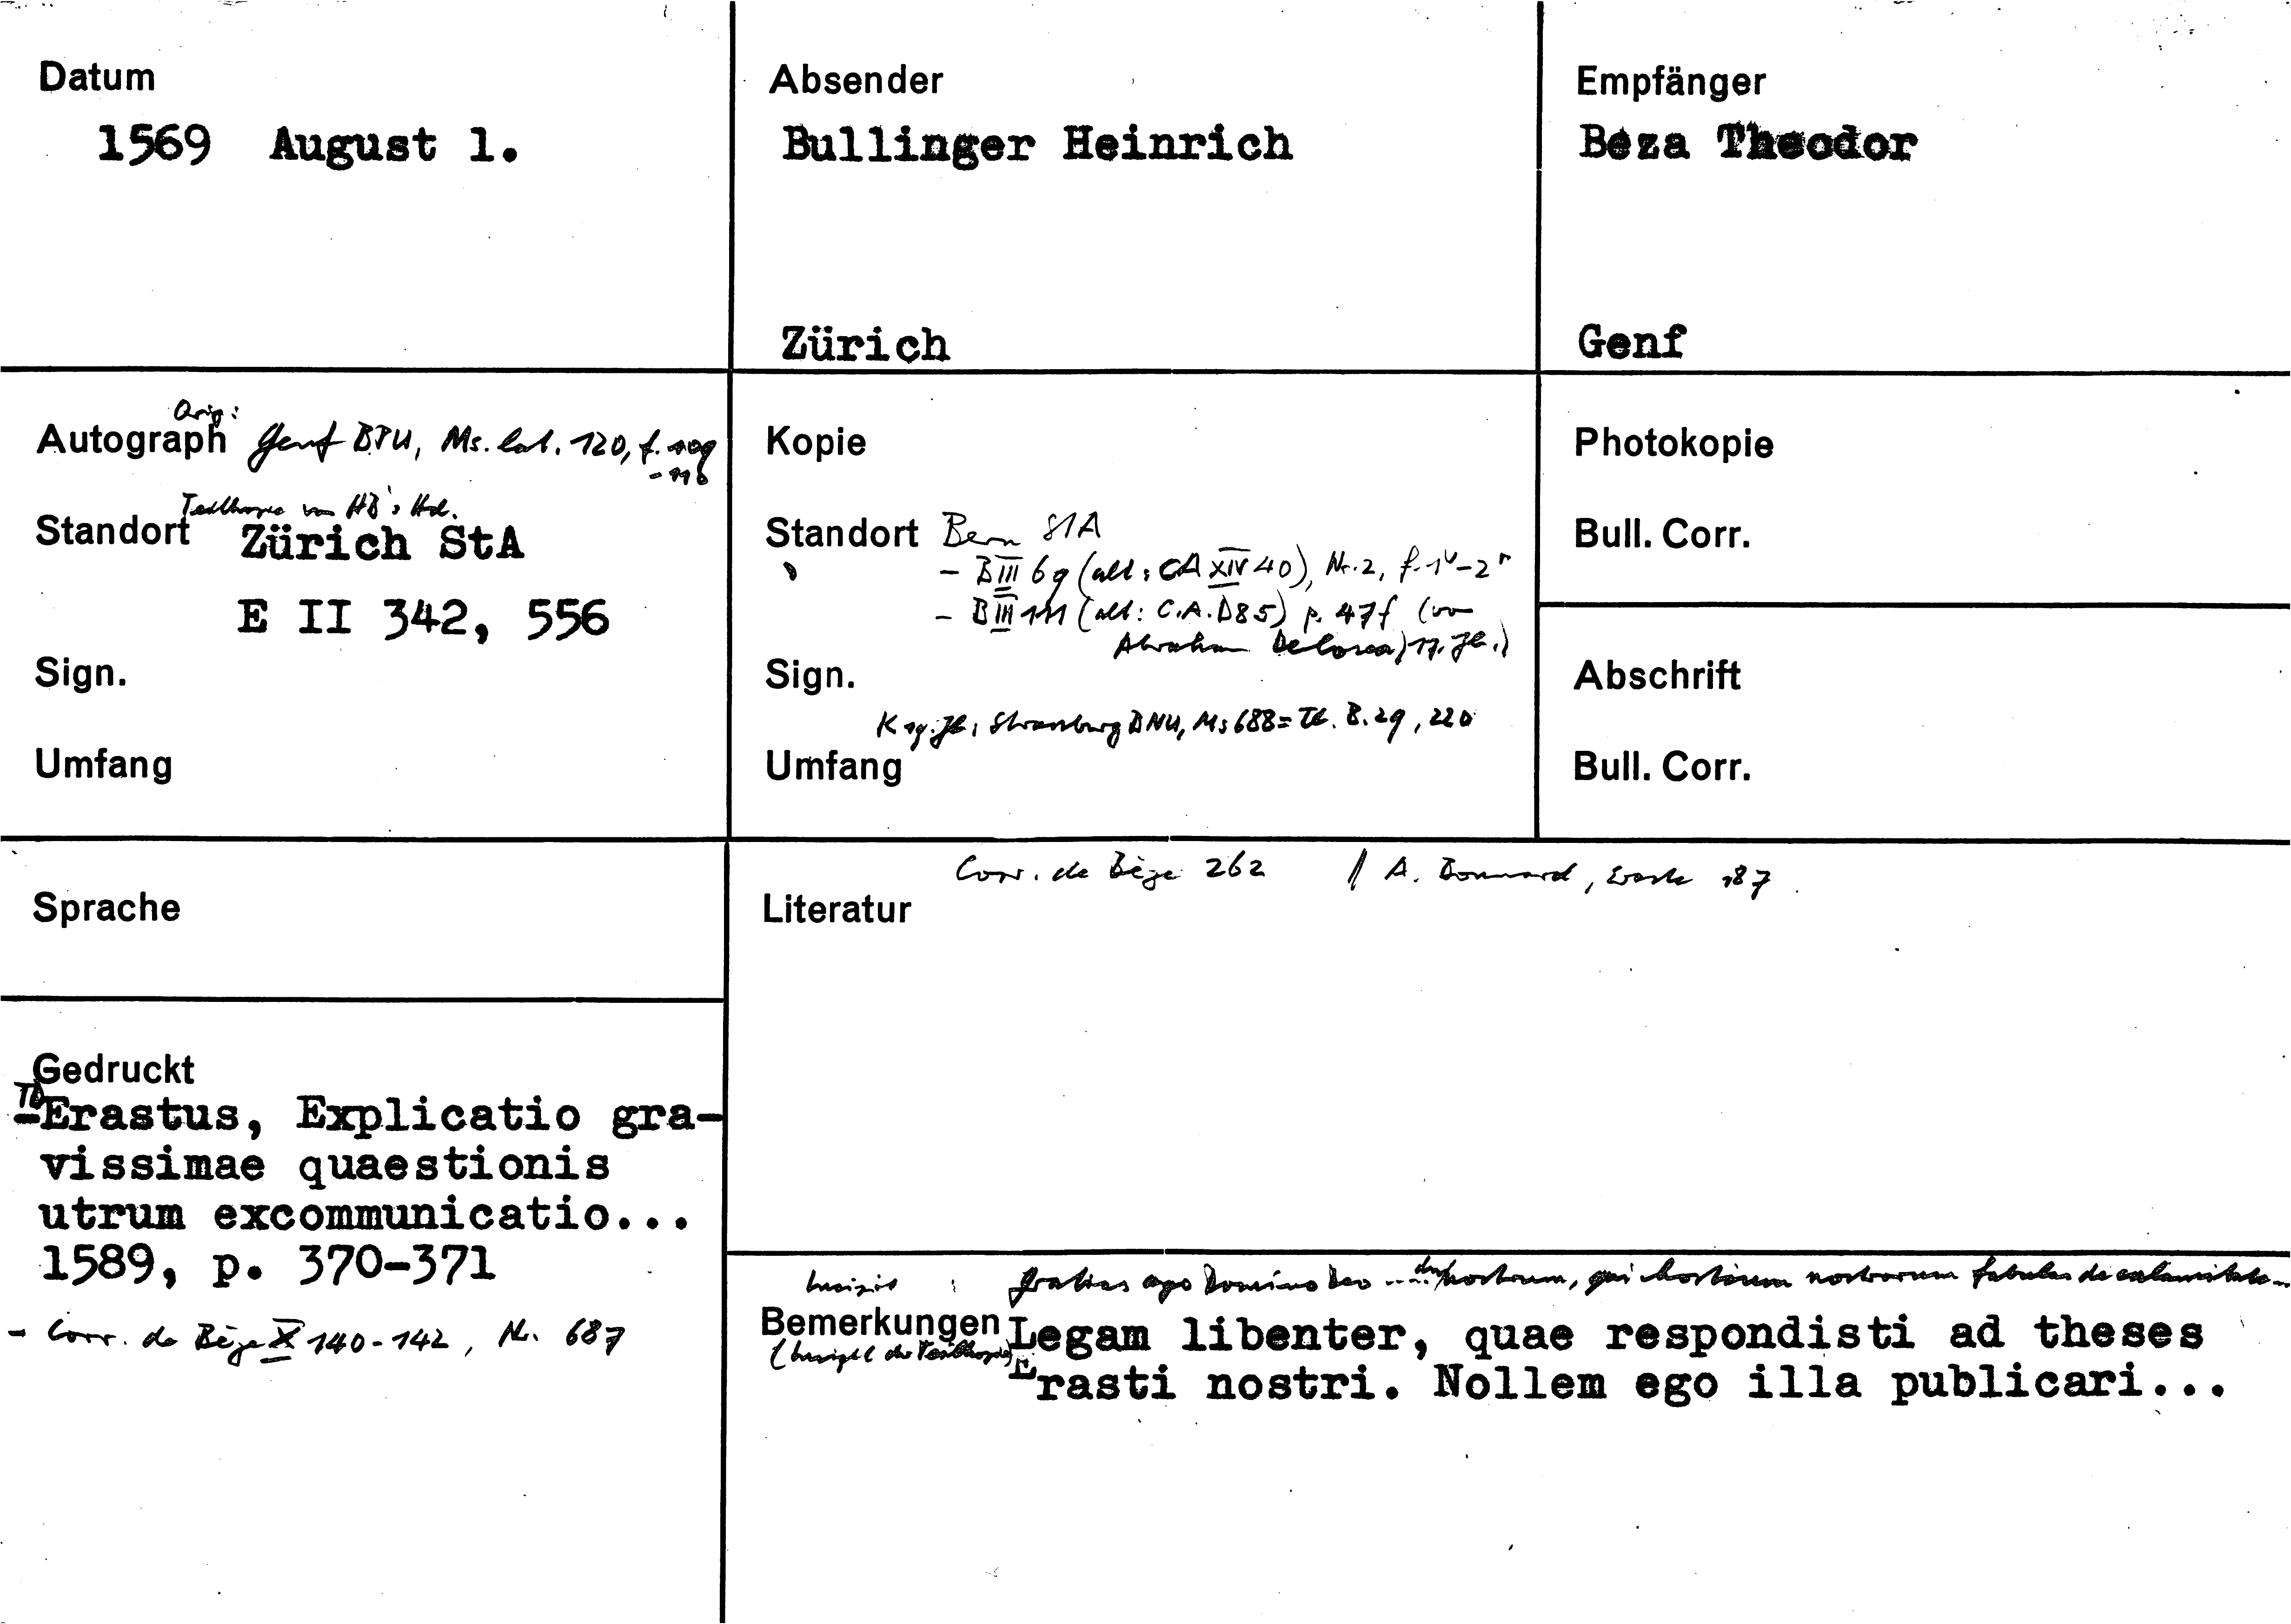 Datum
1569 August 1.
Absender
Bullinger Heinrich
Zürich
Empfänger
Beza Theodor
Genf
Orig:
Autograph Genf BPU, Ms. lat. 120, f. 109
-110
Teilkopie von HB's Hd.
Standort Zürich StA
E II 342, 556
Sign.
Umfang
Kopie
Standort Bern StA
- B III 69 (alt: CA XIV 40), Nr. 2, f. 1v-2r
- B III 111 (alt: C.A. D85) p. 47f (von
Abraham 17. Jh.)
Sign.
K 19. Jh: Strassburg BNU, Ms 688 = Th. B. 29, 220
Umfang
Photokopie
Bull. Corr.
Abschrift
Bull. Corr.
Sprache
Corr. de Bèze 262 // A. Bonnard, Eraste 187.
Literatur
Gedruckt
TD
- Erastus, Explicatio gra-
vissimae quaestionis
utrum excommunicatio...
1589, p. 370-371
- Corr. de Bèze X 140-142, Nr. 687
Incipit : Gratias ago Domino Deo ... nostrum, qui hostium nostrorum fabulas de calamitate...
Bemerkungen Legam libenter, quae respondisti ad theses
(Incipit der Teilkopie) Erasti nostri. Nollem ego illa publicari...